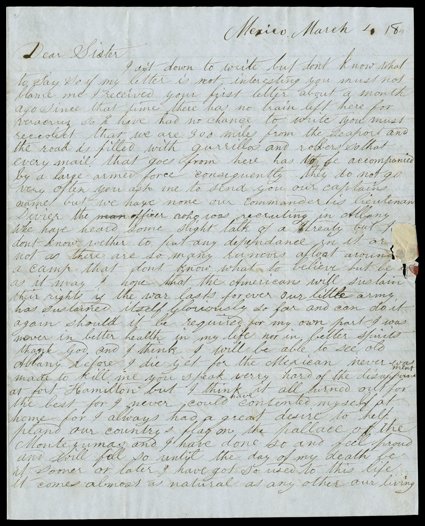 Mexico March 4, 18
Dear Sister
I sit down to write but dont know what
to say so if my letter is not interesting you must not
blame me I received your first letter about a month
ago since that time there has no train left here for
veracruz so I have had no chance to write you must
recollect that we are 300 miles from the seaport and
the road is filled with garrillas and robers so that
every mail that goes from here has to be accompanied
by a large armed force consequently they do not go
very often you ask me to send you our captains
name but we have none our commander his Lieutenant
the man officer who was recruiting in Albany
We have heard some slight talk of a treaty but I
dont know wether to put any dependance in it or
not as there are so many rumors afloat around
a camp that dont know what to believe but be
as it may I hope that the Americans will sustain
their rights if the war lasts forever our little army
has sustained itself gloriously so far and can do it
again should it be required for my own part I was
never in better health in my life nor in better spirits
thank God, and I think I will be able to see old
Albany before I die yet for the Mexican never was
made to kill me you speak very hard of the
at fort Hamilton but I think it all turned out for
the best for I never could have contented myself at
home for I always had a great desire to help
plant our countrys flag on the pallace of the
Montezumas and I have done so and feel proud
and will fell so until the day of my death be
it sooner or later I have got so used to this life
it comes almost as natural as any other our living